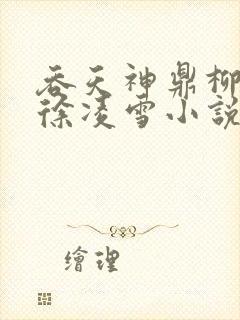 吞天神鼎柳
徐凌雪小說
繪理